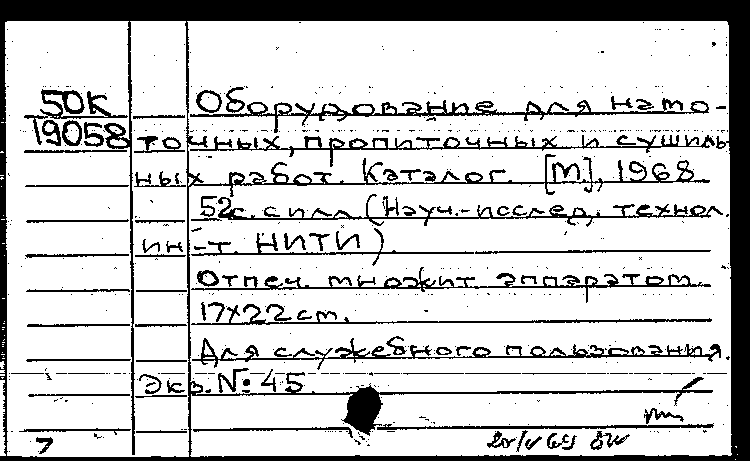 50К
19058
Оборудование для намо-
точных, пропиточных и сушиль
ных работ. Каталог. [М], 1968.
52с. с илл (Науч.-исслед. технол.
ин-т. НИТИ).
Отпеч. множит. аппаратом.
17x22 cm.
Для служебного пользования.
Экз. № 45
7